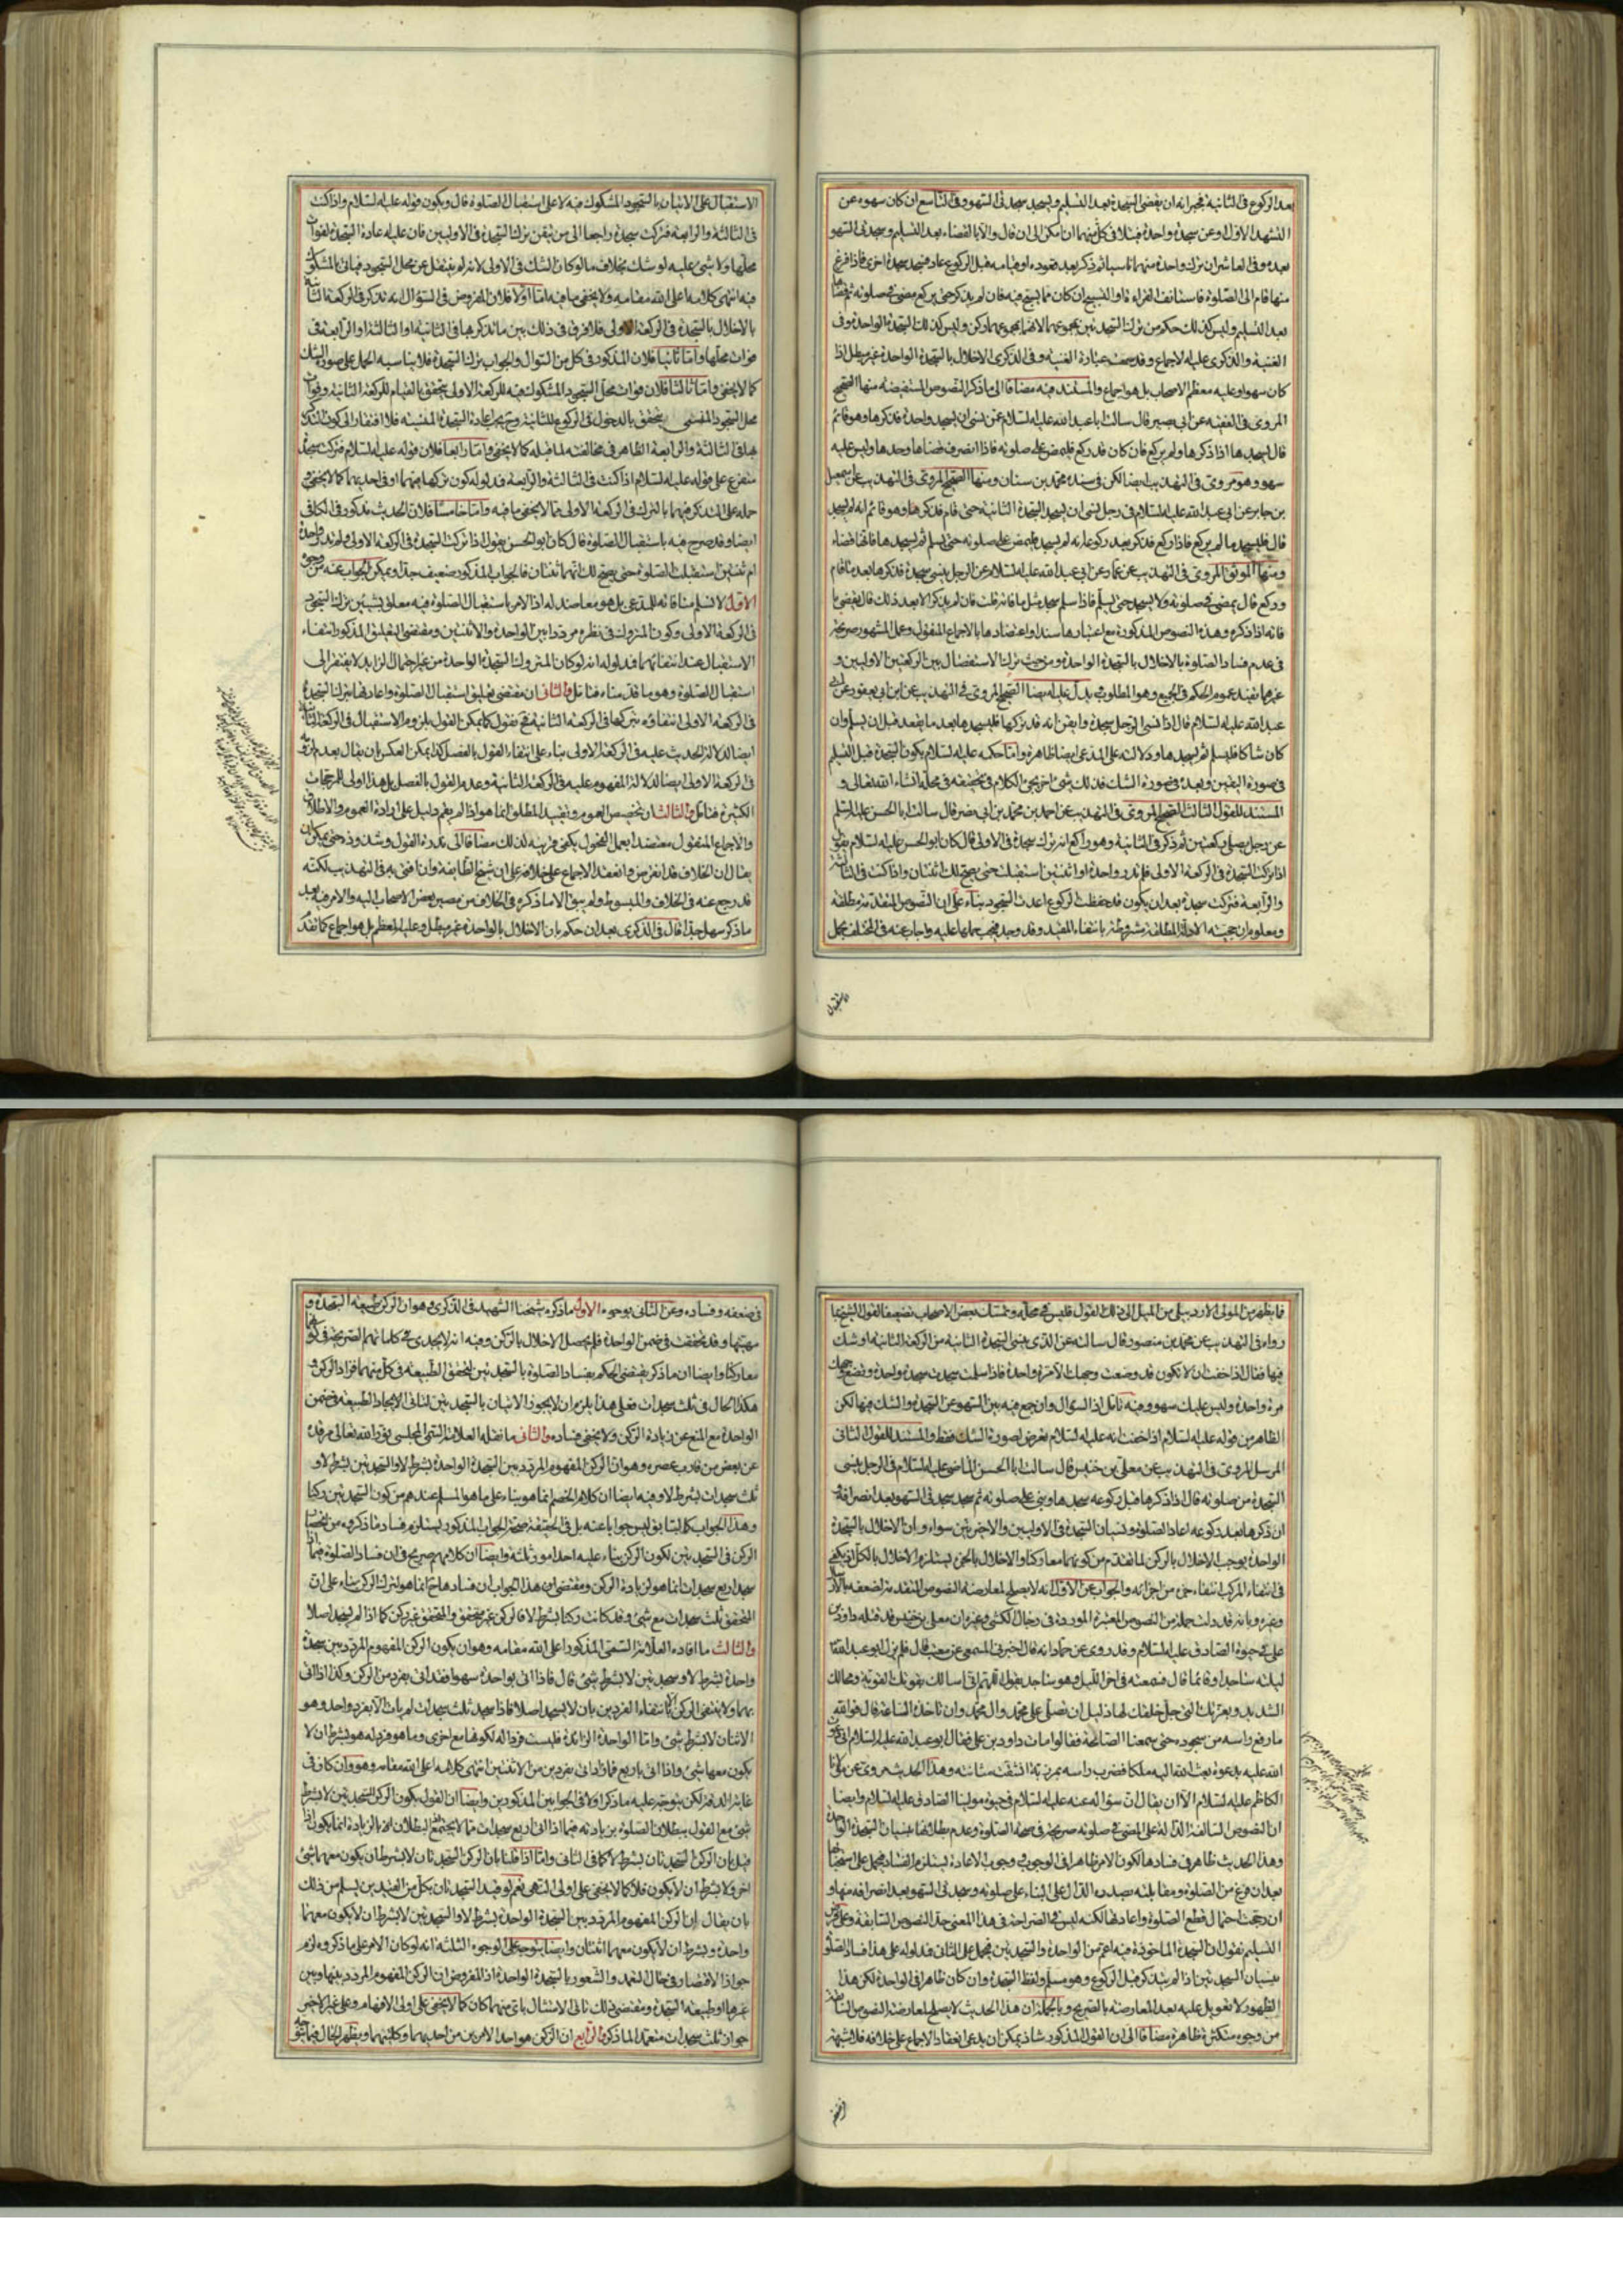 بعد الركوع فى الثانية فخبرانه ان يقضى السجدة بعد التسليم ويسجد سجدتى السهو وفى التاسع ان كان سهوه عن
التشهد الاول او عن سجدة واحدة فتلافى كل منهما ان امكن الى ان قال والا بالقضاء بعد التسليم وسجدتى السهو
بعده وفى العاشر ان ترك واحدة منهما ناسيا ثم ذكر بعد قعوده او قيامه قبل الركوع عاد فسجد سجدة اخرى فاذا فرغ
منها قام الى الصلوة فاستانف القراءة او التسبيح ان كان مما يسبح فيه فان لم يذكر حتى يركع مضى فى صلوته ثم قضاها
بعد التسليم وليس كذلك حكم من ترك السجدتين بمجموعهما لانهما بمجموعهما ركن وليس كذلك السجدة الواحدة وفى
الغنية والذكرى عليه الاجماع وقد سمعت عبارة الغنية وفى الذكرى الاخلال بالسجدة الواحدة غير مبطل اذا
كان سهوا وعليه معظم الاصحاب بل هو اجماع والمستند فيه مضافا الى ما ذكر النصوص المستفيضة منها الصحيح
المروى فى الفقيه عن ابى بصير قال سالت ابا عبد الله عليه السلام عمن نسى ان يسجد واحدة فذكرها وهو قائم
قال يسجدها اذا ذكرها ولم يركع فان كان قد ركع فليمض على صلوته فاذا انصرف قضاها وحدها وليس عليه
سهو وهو مروى فى التهذيب ايضا لكن فى سنده محمد بن سنان ومنها الصحيح المروى فى التهذيب عن اسمعيل
بن جابر عن ابى عبد الله عليه السلام فى رجل نسى ان يسجد السجدة الثانية حتى قام فذكر وهو قائم انه لم يسجد
قال فليسجد ما لم يركع فاذا ركع فذكر بعد ركوعه انه لم يسجد فليمض على صلوته حتى يسلم ثم يسجدها فانها قضاء
ومنها الموثق المروى فى التهذيب عن عمار عن ابى عبد الله عليه السلام عن الرجل ينسى سجدة فذكرها بعد ما قام
وركع قال يمضى فى صلوته ولا يسجد حتى يسلم فاذا سلم سجد مثل ما فاته قلت فان لم يذكر الا بعد ذلك قال يقضى ما
فاته اذا ذكره وهذه النصوص المذكورة مع اعتبارها سندا واعتضادها بالاجماع المنقول وعمل المشهور صريحة
فى عدم فساد الصلوة بالاخلال بالسجدة الواحدة ومن حيث ترك الاستفصال بين الركعتين الاوليين و
غيرهما يفيد عموم الحكم فى الجميع وهو المطلوب يدل عليه ايضا الصحيح المروى فى التهذيب عن ابن ابى يعفور عن ابى
عبد الله عليه السلام قال اذا نسى الرجل سجدة وايقن انه قد تركها فليسجدها بعد ما يقعد قبل ان يسلم وان
كان شاكا فليسلم ثم ليسجدها ودلالته على المدعى ايضا ظاهرة واما حكمه عليه السلام بكون السجدة قبل التسليم
فى صورة اليقين وبعده فى صورة الشك فذلك شىء اخر يجىء الكلام فى تحقيقه فى محله انشاء الله تعالى و
المستند للقول الثالث الصحيح المروى فى التهذيب عن احمد بن محمد بن ابى نصر قال سالت ابا الحسن عليه السلام
عن رجل يصلى ركعتين ثم ذكر فى الثانية وهو راكع انه ترك سجدة فى الاولى قال كان ابو الحسن عليه السلام يقول
اذا تركت السجدة فى الركعة الاولى فلم تدر واحدة او اثنتين استقبلت حتى يصح لك ثنتان واذا كنت فى الثالثة
والرابعة فتركت سجدة بعد ان يكون قد حفظت الركوع اعدت السجود بناء على ان النصوص المتقدمة مطلقة
ومعلوم ان حجية الادلة المطلقة مشروطة بانتفاء المقيد وقد وجد فيجب حملها عليه واجاب عنه فى المختلف بحمل
الاستقبال
الاستقبال على الاتيان بالسجود المشكوك فيه لا على استقبال الصلوة قال ويكون قوله عليه السلام واذا كنت
فى الثالثة والرابعة فتركت سجدة راجعا الى من تيقن ترك السجدة فى الاوليين فان عليه اعادة السجدة لفوات
محلها ولا شىء عليه لو شك بخلاف ما لو كان الشك فى الاولى لانه لم ينتقل عن محل السجود فياتى بالمشكوك
فيه انتهى كلامه اعلى الله مقامه ولا يخفى ما فيه اما اولا فلان المفروض فى السؤال انه تذكر فى الركعة الثانية
بالاخلال بالسجدة فى الركعة الاولى فلا فرق فى ذلك بين ما تذكرها فى الثانية او الثالثة او الرابعة فى
فوات محلها واما ثانيا فلان المذكور فى كل من السؤال والجواب ترك السجدة فلا يناسبه الحمل على صورة الشك
كما لا يخفى واما ثالثا فلان فوات محل السجود المشكوك فيه للركعة الاولى يتحقق بالقيام للركعة الثانية وفوات
محل السجود المنسى يتحقق بالدخول فى الركوع للثانية وح يجب اعادة السجدة المنسية فلا افتقار الى كون التذكر
لها فى الثالثة والرابعة الظاهر فى مخالفته لما قبله كما لا يخفى واما رابعا فلان قوله عليه السلام فتركت سجدة
متفرع على قوله عليه السلام اذا كنت فى الثالثة والرابعة فمدلوله كون تركها فيهما او فى احديهما كما لا يخفى و
حمله على التذكر فيهما بالترك فى الركعة الاولى مما لا يخفى ما فيه واما خامسا فلان الحديث مذكور فى الكافى
ايضا وقد صرح فيه باستقبال الصلوة قال كان ابو الحسن يقول اذا تركت السجدة فى الركعة الاولى ولم تدر واحدة
ام ثنتين استقبلت الصلوة حتى يصح لك انهما ثنتان فالجواب المذكور ضعيف جدا ويمكن الجواب عنه من وجوه
الاول لا نسلم منافاته للمدعى بل هو معاضد له اذ الامر باستقبال الصلوة فيه معلق بشيئين ترك السجود
فى الركعة الاولى وكون المتروك فى نظره مرددا بين الواحدة والاثنتين ومقتضى التعليق المذكور انتفاء
الاستقبال عند انتفائهما فمدلوله انه لو كان المتروك السجدة الواحدة من غير احتمال الزايد لا يفتقر الى
استقبال الصلوة وهو ما قدمناه فتامل والثانى ان مقتضى تعليق استقبال الصلوة واعادتها بترك السجدة
فى الركعة الاولى انتفاؤه بتركها فى الركعة الثانية فح نقول كما يمكن القول بلزوم الاستقبال فى الركعة الثانية
ايضا لدلالة الحديث عليه فى الركعة الاولى بناء على انتفاء القول بالفصل كذا يمكن العكس بان يقال بعد لزومه
فى الركعة الاولى ايضا لدلالة المفهوم عليه فى الركعة الثانية وعدم القول بالفصل بل هذا اولى للمرجحات
الكثيرة فتامل والثالث ان تخصيص العموم وتقييد المطلق انما هو اذا لم يقم دليل على ارادة العموم والاطلاق
والاجماع المنقول معتضدا بعمل الفحول يكفى قرينة لذلك مضافا الى ندرة القول وشذوذه حتى يمكن ان
يقال ان الخلاف قد انقرض وانعقد الاجماع على خلافه على ان شيخ الطايفة وان افتى به فى التهذيب لكنه
قد رجع عنه فى الخلاف والمبسوط ولم يبق الا ما ذكره فى الخلاف من مصير بعض الاصحاب اليه والامر فيه بعد
ما ذكر سهل جدا قال فى الذكرى بعد ان حكم بان الاخلال بالواحدة غير مبطل وعليه المعظم بل هو اجماع كما تقدم
فما يظهر من المولى الاردبيلى من الميل الى ذلك القول فليس فى محله وتمسك بعض الاصحاب تضعيفا لقول الشيخ بما
رواه فى التهذيب عن محمد بن منصور قال سالته عن الذى ينسى السجدة الثانية من الركعة الثانية او شك
فيها فقال اذا خفت ان لا تكون قد وضعت وجهك الا مرة واحدة فاذا سلمت سجدت سجدة واحدة وتضع وجهك
مرة واحدة وليس عليك سهو وفيه تامل اذ السؤال وان جمع فيه بين السهو عن السجدة والشك فيها لكن
الظاهر من قوله عليه السلام اذا خفت انه عليه السلام تعرض لصورة الشك فقط والمستند للقول الثانى
المرسل المروى فى التهذيب عن معلى بن خنيس قال سالت ابا الحسن الماضى عليه السلام فى الرجل ينسى
السجدة من صلوته قال اذا ذكرها قبل ركوعه سجدها وبنى على صلوته ثم سجد سجدتى السهو بعد انصرافه و
ان ذكرها بعد ركوعه اعاد الصلوة ونسيان السجدة فى الاوليين والاخيرتين سواء وان الاخلال بالسجدة
الواحدة يوجب الاخلال بالركن لما تقدم من كونهما معا ركنا والاخلال بالجزء يستلزم الاخلال بالكل اذ يكفى
فى انتفاء المركب انتفاء جزء من اجزائه والجواب عن الاول انه لا يصلح لمعارضة النصوص المتقدمة لضعفه بالارسال
وغيره وبانه قد دلت جملة من النصوص المعتبرة الموردة فى رجال الكشى وغيره ان معلى بن خنيس قد قتله داود بن
على فى حيوة الصادق عليه السلام وقد روى عن حماد انه قال اخبرنى المسمعى عن معتب قال فلم يزل ابو عبد الله
ليلته ساجدا وقائما قال فسمعته فى اخر الليل وهو ساجد يقول اللهم انى اسالك بقوتك القوية ومحالك
الشديد وبعزتك التى جل خلقك لها ذليل ان تصلى على محمد وال محمد وان تاخذه الساعة قال فوالله
ما رفع راسه من سجوده حتى سمعنا الصائحة فقالوا مات داود بن على فقال ابو عبد الله عليه السلام انى دعوت
الله عليه بدعوة بعث الله اليه ملكا فضرب راسه بمرزبة انشقت مثانته وهذا الحديث مروى عن مولانا
الكاظم عليه السلام الا ان يقال ان سؤاله عنه عليه السلام فى حيوة مولينا الصادق عليه السلام وايضا
ان النصوص السالفة الدالة على المضى فى صلوته صريحة فى صحة الصلوة وعدم بطلانها بنسيان السجدة الواحدة
وهذا الحديث ظاهر فى فسادها لكون الامر ظاهرا فى الوجوب ووجوب الاعادة يستلزم الفساد فيحمل على استحبابها
بعد ان فرغ من الصلوة ومقابلته بصدره الدال على البناء على صلوته وسجدتى السهو بعد انصرافه منها و
ان رجحت احتمال قطع الصلوة واعادتها لكنه ليس فى الصراحة فى هذا المعنى بمثل النصوص السابقة وعلى فرض
التسليم نقول ان السجدة الماخوذة فيه اعم من الواحدة والسجدتين فيحمل على الثانى فمدلوله على هذا فساد الصلوة
بنسيان السجدتين اذا لم يتذكر قبل الركوع وهو مسلم ولفظ السجدة وان كان ظاهرا فى الواحدة لكن هذا
الظهور لا تعويل عليه بعد المعارضة بالصريح وبالجملة ان هذا الحديث لا يصلح لمعارضة النصوص السابقة
من وجوه متكثرة ظاهرة مضافا الى ان القول المذكور شاذ يمكن ان يدعى انعقاد الاجماع على خلافه فلا شبهة
فى ضعفه
فى ضعفه وفساده وعن الثانى بوجوه الاول ما ذكره شيخنا الشهيد فى الذكرى وهو ان الركن طبيعة السجدة و
مهيتها وقد تحققت فى ضمن الواحدة فلم يحصل الاخلال بالركن وفيه انه لا يجدى فى كلماتهم الصريحة فى كونهما
معا ركنا وايضا ان ما ذكر يقتضى الحكم بفساد الصلوة بالسجدتين لتحقق الطبيعة فى كل منهما فزاد الركن و
هكذا الحال فى ثلث سجدات فعلى هذا يلزم ان لا يجوز الاتيان بالسجدتين لتنافى الايجاد الطبيعة فى ضمن
الواحدة مع المنع عن زيادة الركن ولا يخفى فساده والثانى ما نقله العلامة السمى المجلسى نور الله تعالى مرقده
عن بعض من قارب عصره وهو ان الركن المفهوم المردد بين السجدة الواحدة بشرط لا والسجدتين بشرط لا و
ثلث سجدات بشرط لا وفيه ايضا ان كلام الخصم انما هو بناء على ما هو المسلم عندهم من كون السجدتين ركنا
وهذا الجواب كالسابق ليس جوابا عنه بل فى الحقيقة صحة الجواب المذكور يستلزم فساد ما ذكروه من انحصار
الركن فى السجدتين لكون الركن بناء عليه احد امور ثلثة وايضا ان كلامهم صريح فى ان فساد الصلوة فيما اذا
سجد اربع سجدات انما هو لزيادة الركن ومقتضى هذا الجواب ان فسادها ح انما هو لترك الركن بناء على ان
المتحقق ثلث سجدات مع شىء وقد كانت ركنا بشرط لا فالركن غير متحقق والمتحقق غير ركن كما اذا لم يسجد اصلا
والثالث ما افاده العلامة السمى المذكور اعلى الله مقامه وهو ان يكون الركن المفهوم المردد بين سجدة
واحدة بشرط لا وسجدتين لا بشرط شىء قال فاذا اتى بواحدة سهوا فقد اتى بفرد من الركن وكذا اذا اتى
بهما ولا ينتفى الركن الا بانتفاء الفردين بان لا يسجد اصلا فاذا سجد ثلث سجدات لم يات الا بفرد واحد وهو
الاثنتان لا بشرط شىء واما الواحدة الزائدة فليست فردا له لكونها مع اخرى وما هو فرد له هو بشرط ان لا
يكون معها شىء واذا اتى باربع فما زاد اتى بفردين من الاثنتين انتهى كلامه اعلى الله مقامه وهو وان كان فى
غاية الدقة لكن يتوجه عليه ما ذكر اولا فى الجوابين المذكورين وايضا ان القول بكون الركن السجدتين لا بشرط
شىء مع القول ببطلان الصلوة بزيادته فيما اذا اتى اربع سجدات مما لا يجتمع اذ البطلان ح بالزيادة انما يكون اذا
قيل بان الركن السجدتان بشرط لا كما فى الثانى واما اذا قلنا بان الركن السجدتان لا بشرط ان يكون معهما شىء
اخر ولا بشرط ان لا يكون فلا كما لا يخفى على اولى النهى نعم لو قيد السجدتان بكل من القيدين يسلم من ذلك
بان يقال ان الركن المفهوم المردد بين السجدة الواحدة بشرط لا والسجدتين لا بشرط ان لا يكون معهما
واحدة وبشرط ان لا يكون معهما اثنتان وايضا يتوجه على الوجوه الثلثة انه لو كان الامر على ما ذكروه لزم
جواز الاقتصار فى حال العمد والشعور بالسجدة الواحدة اذ المفروض ان الركن المفهوم المردد بينها وبين
غيرها او طبيعة السجدة ومقتضى ذلك تاتى الامتثال باى منهما كان كما لا يخفى على اولى الافهام وعلى غير الاخير
جواز ثلث سجدات متعمدا لما ذكر والرابع ان الركن هو احد الامرين من احديهما وكلتيهما ويظهر الحال فيما تو